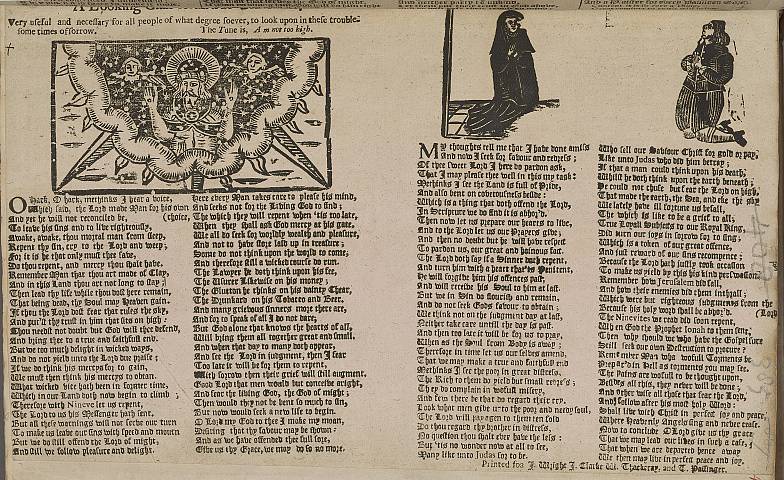 A Looking
Very useful and necessary for all people of what degree soever, to look upon in these trouble-
some times of sorrow. The Tune is, Am not too high.
O Hark, O hark, methinks I hear a voice,
Which said, the Lord made Man for his own
And yet he will not reconciled be, (choice,
To leave his sins and to live righteously,
Awake, awake, thou mortal man from sleep,
Repent thy sin, cry to the Lord and weep;
For it is he that only must thee save,
Do thou repent, and mercy thou shalt have.
Remember Man that thou art made of Clay,
And in this Land thou art not long to stay;
Then lead thy life while thou dost here remain,
That being dead, thy Soul may Heaven gain.
If thou the Lord dost fear that rules the sky,
And put'st thy trust in him that sits on high:
Thou needst not doubt but God will thee defend,
And bring thee to a true and faithfull end.
But we too much delight in wicked ways,
And do not yield unto the Lord due praise;
If we do think his mercys for to gain,
We must then think his mercys to obtain.
What wicked vice hath been in former time,
Which in our Land doth now begin to climb;
Therefore with speed let us repent,
The Lord to us his Messenger hath sent.
But all these warnings will not serve our turn
To make us leave our sins with speed and mourn
But we do still offend the Lord of might,
And still we follow pleasure and delight.
Here every Man takes care to please his mind,
And seeks not for the Living God to find;
The which they will repent when 'tis too late,
When they shall ask God mercy at his gate,
We all do seek for worldly wealth and pleasure,
And not to have soze laid up in treasure;
Some do not think upon the world to come;
And therefore still a wicked race do run.
The Lawyer he doth think upon his fee,
The Usurer likewise on his money;
The Glutton he thinks on his dainty Chear,
The Drunkard on his Tobacco and Beer.
And many grievous sinners more there are,
And for to speak of all I do not dare;
But God alone that knows the hearts of all,
Will bring them all together great and small,
And when that day to many doth appear,
And see the Lord in judgment, then I fear
Too late it will be for them to repent,
With sorrow then their grief will still augment.
Good Lord that men would but conceive aright,
And fear the living God, the God of might;
Then would they not be bent so much to sin,
But now would seek a new life to begin.
O Lord my God to thee I make my moan,
Desiring that thy favour may be shown:
And as we have offended thee full sore,
Give us thy Grace, we may do so no more.
MY thoughts tell me that I have done amiss
And now I seek for favour and redress;
Of thee sweet Lord I here do pardon ask,
That I may please thee well in this my task:
Methinks I see the Land is full of Pride,
And also bent on covetousness beside:
Which is a thing that doth offend the Lord,
In Scripture we do find it is abhor'd.
Then now let us prepare our hearts to live,
And to the Lord let us our Prayers give;
And then no doubt but he will have respect
To pardon us, our great and hainous fact.
The Lord doth say if a Sinner doth repent,
And turn him with a heart that is Penitent,
He will forgive him his offences past,
And will receive his Soul to him at last.
But we in Sin do flourish and remain,
And do not seek Gods favour to obtain;
We think not on the judgment day at last,
Neither take care untill the day be past.
And then too late it will be for us to pray,
When as the Soul from Body is away;
Therefore in time let us our selves amend,
That we may make a true and faithfull end
Methinks I see the poor in great distress,
The Rich to them do yield but small redress;
They do complain in woful misery,
And few there be that do regard their cry.
Look what men give unto the poor and needy soul,
The Lord will pay again to them ten fold
Do thou regard thy brother in distress,
No question thou shalt ever have the less:
But 'tis no wonder now at all to see,
Many like Judas for to be.
Who sell our Saviour Christ for gold or pay,
Like unto Judas who did him betray;
If that a man could think upon his death,
Whilst he doth think upon the earth beneath;
He could not chuse but fear the Lord on high,
That made the earth, the Sea, and eke the sky
We lately have ill fortune us befall,
The which is like to be a grief to all;
True Loyall Subjects to our Royal King,
Did turn our joys in sorrow for to sing;
Which is a token of our great offence,
And just reward of our sins recompence;
Because the Lord had justly took occasion
To make us yield by this his kind perswasion.
Remember how Jerusalem did fall,
And how their enemies did them inthrall;
Which were but righteous judgments from the
Because his holy word shall be abhor'd. (Lord
The Ninevites we read did soon repent,
When God the Prophet Jonah to them sent,
Then why should we who have the Gospel sure
Still seek our own Destruction to procure?
Remember Man who wofull Torments be
Prepar'd in Hell as torments you may see.
The pains are wofull to be thought upon,
Besides all this, they never will be done;
And otherwise all those that fear the Lord,
And follow after his most holy Word:
Shall live with Christ in perfect joy and peace,
Where Heavenly Angels sing and never cease.
Now to conclude O Lord give us thy grace
That we may lead our lives in such a case;
That when we are departed hence away
We then may live in perfect peace and joy.
Printed for J. Wright J. Clarke W. Thackeray, and T. Passinger.